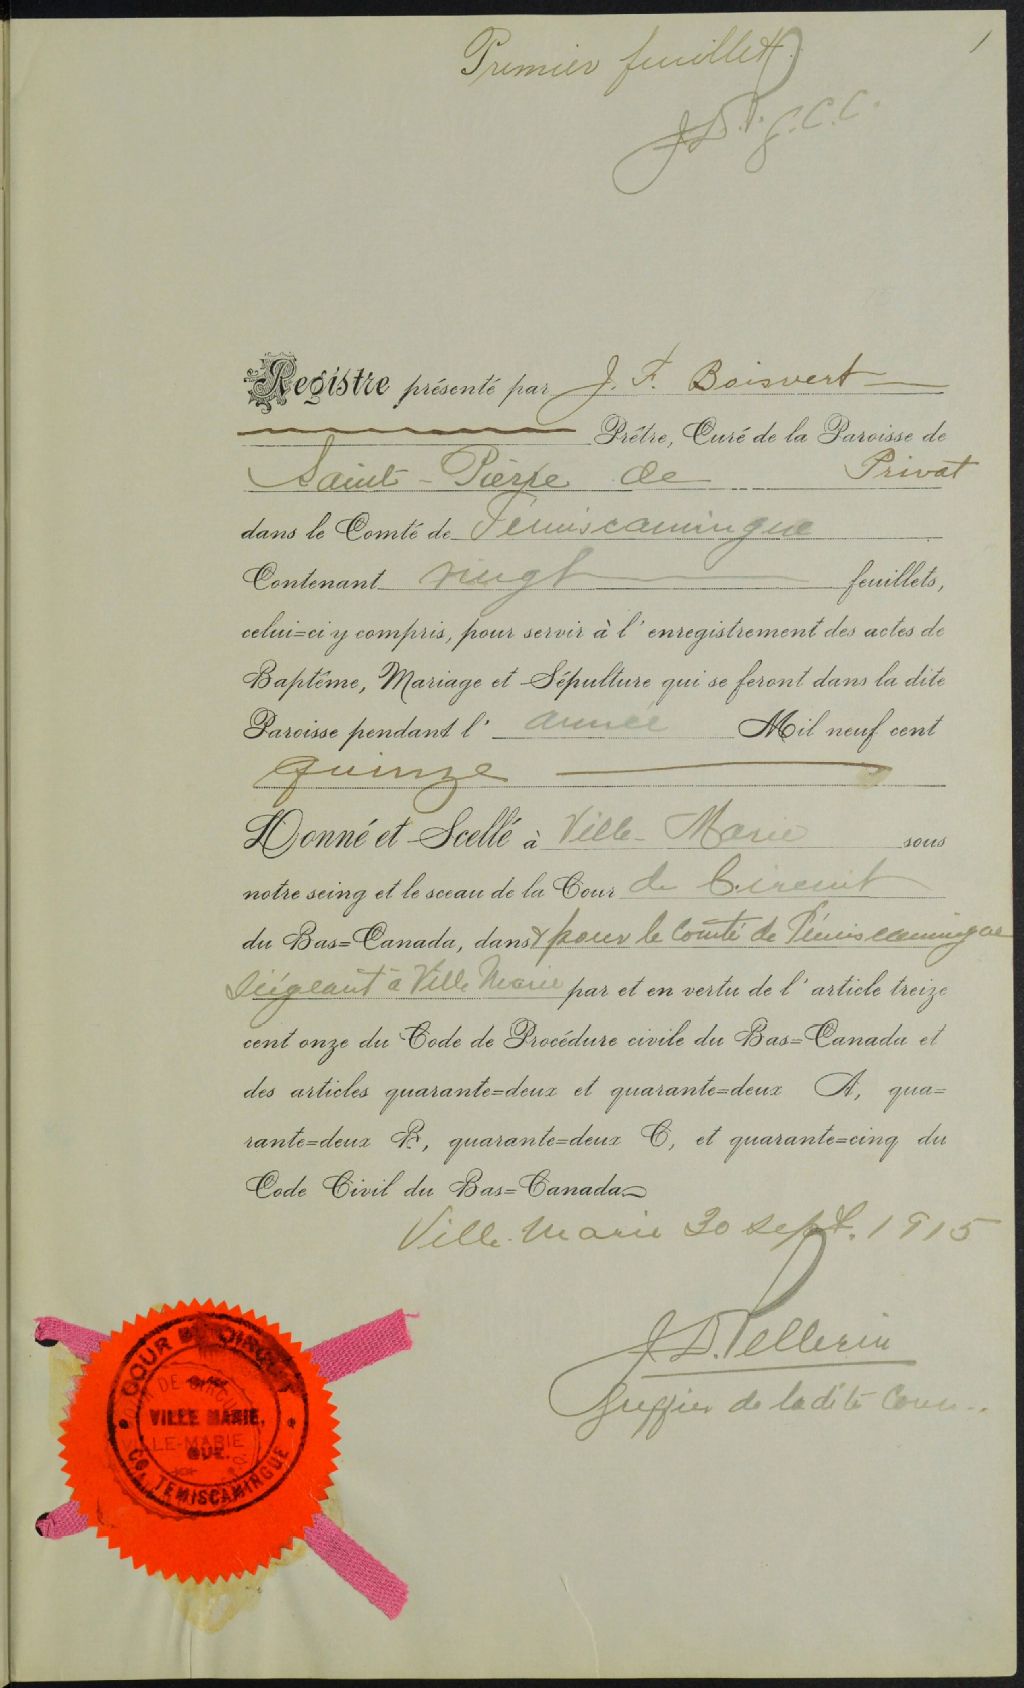 Premier feuillet
1
J.D.P. g.C.C.
Registre présenté par J. F. Boisvert
Prêtre, Curé de la Paroisse de
Saint-Pierre de Privat
dans le Comté de Témiscamingue
Contenant vingt feuillets,
celui=ci y compris, pour servir à l'enregistrement des actes de
Baptême, Mariage et Sépulture qui se feront dans la dite
Paroisse pendant l'année Mil neuf cent
quinze
Donné et Scellé à Ville-Marie sous
notre seing et le sceau de la Cour de Circuit
du Bas=Canada, dans & pour le Comté de Témiscamingue
Siégeant à Ville Marie par et en vertu de l'article treize
cent onze du Code de Procédure civile du Bas=Canada et
des articles quarante=deux et quarante=deux A, qua=
rante=deux B, quarante=deux C, et quarante=cinq du
Code Civil du Bas=Canada
Ville-Marie 30 sept. 1915
J.D. Pellerin
Greffier de la dite Cour.
COUR DE CIRCUIT
VILLE MARIE,
QUE.
CO. TEMISCAMINGUE